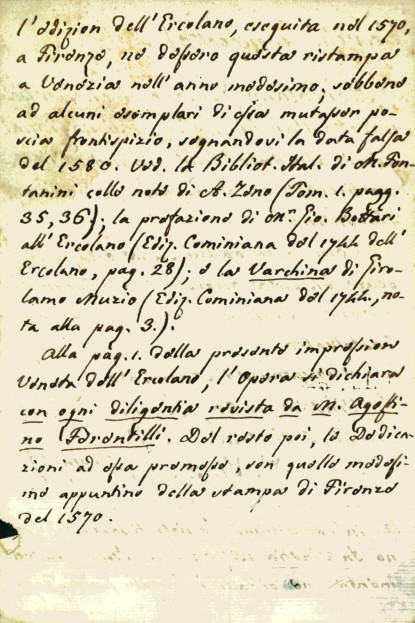 l'edizion dell'Ercolano, eseguita nel 1570,
a Firenze, ne dessero questa ristampa
a Venezia nell'anno medesimo; sebbene
ad alcuni esemplari di essa mutasser po-
scia frontispizio, segnandovi la data falsa
del 1580. Ved. la Bibliot. Ital. di M. Fon-
tanini colle note di A. Zeno (Tom. 1. pagg.
35, 36); la prefazione di Mr. Gio. Bottari
all'Ercolano (Ediz. Cominiana del 1744 dell'
Ercolano, pag. 28); e la Varchina di Giro-
lamo Muzio (Ediz. Cominiana del 1744., no-
ta alla pag. 3.).
Alla pag. 1. della presente impression
Veneta dell'Ercolano, l'Opera si dichiara
con ogni diligentia revista da M. Agosti-
no Ferentilli. Del resto poi, le Dedica-
zioni ad essa premesse, son quelle medesi-
me appuntino della stampa di Firenze
del 1570.